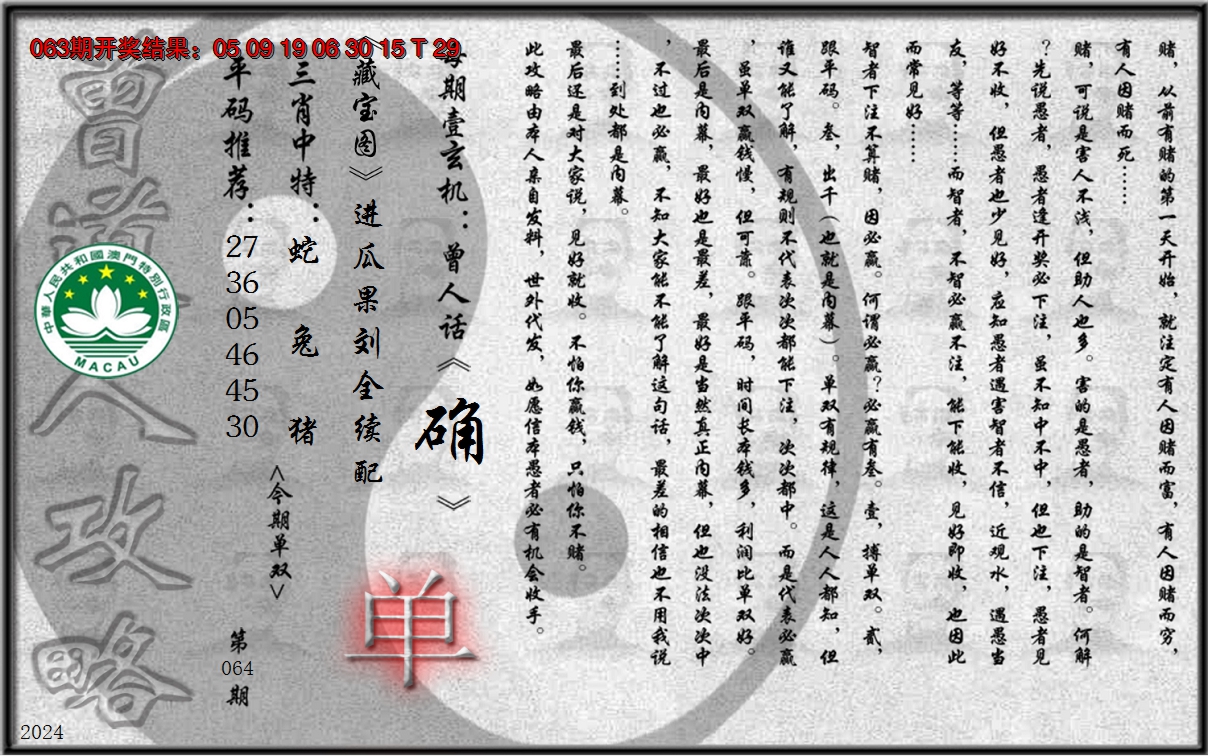 063期开奖结果：05 09 19 06 30 15 T 29
赌，从前有赌的第一天开始，就注定有人因赌而富，有人因赌而穷，
有人因赌而死……
赌，可说是害人不浅，但助人也多。害的是愚者，助的是智者。何解
？先说愚者，愚者逢开奖必下注，虽不知中不中，但也下注，愚者见
好不收，但愚者也少见好，应知愚者遇害智者不信，近观水，遇愚当
友，等等……而智者，不智必赢不注，能下能收，见好即收，也因此
而常见好……
智者下注不算赌，因必赢。何谓必赢？必赢有叁。壹，搏单双。贰，
跟平码。叁，出千（也就是内幕）。单双有规律，这是人人都知，但
谁又能了解，有规则不代表次次都能下注，次次都中。而是代表必赢
，虽单双赢钱慢，但可靠。跟平码，时间长本钱多，利润比单双好。
最后是内幕，最好也是最差，最好是当然真正内幕，但也没法次次中
，不过也必赢，不知大家能不能了解这句话，最差的相信也不用我说
……到处都是内幕。
最后还是对大家说，见好就收。不怕你赢钱，只怕你不赌。
此攻略由本人亲自发料，世外代发，如愿信本愚者必有机会收手。
每期壹玄机：曾人话《确》
《藏宝图》进瓜果刘全续配
单
三肖中特：蛇 兔 猪
<今期单双>
平码推荐：27 36 05 46 45 30
第064期
曾道人攻略
中華人民共和國澳門特別行政區
MACAU
2024